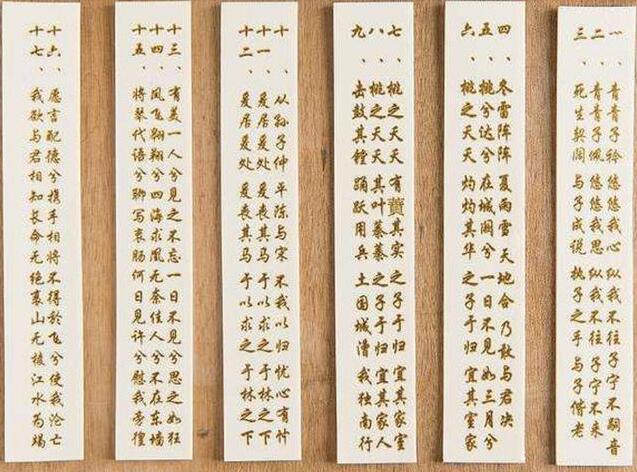 一、青青子衿悠悠我心 纵我不往子宁不嗣音
二、青青子佩悠悠我思 纵我不往子宁不来
三、死生契阔与子成说 执子之手与子偕老
四、冬雷阵阵夏雨雪 天地合乃敢与君决
五、挑兮达兮在城阙兮 一日不见如三月兮
六、桃之夭夭灼灼其华 之子于归宜其室家
七、桃之夭夭有蕡其实 之子于归宜其家室
八、桃之夭夭其叶蓁蓁 之子于归宜其家人
九、击鼓其镗踊跃用兵 土国城漕我独南行
十、从孙子仲平陈与宋 不我以归忧心有忡
十一、爰居爰处爰丧其马于以求之于林之下
十二、爰居爰处爰丧其马于以求之于林之下
十三、有美一人兮见之不忘一日不见兮思之如狂
十四、凤飞翱翔兮四海求凰无奈佳人兮不在东墙
十五、将琴代语兮聊写衷肠何日见许兮慰我旁徨
十六、愿言配德兮携手相将不得於飞兮使我沦亡
十七、我欲与君相知长命无绝衰山无棱江水为竭